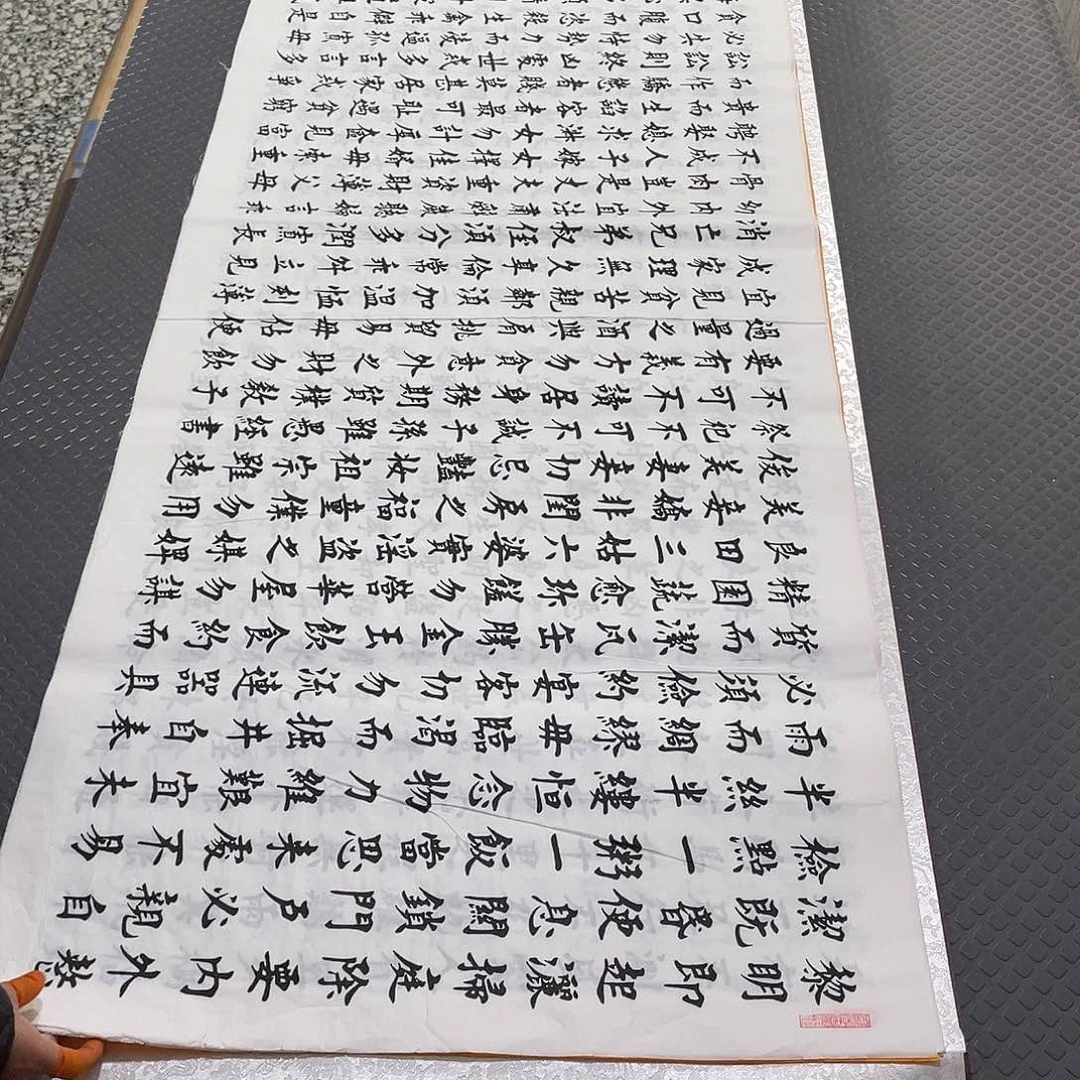 黎明即起灑掃庭除要內外整
潔既昏便息關鎖門戶必親自
檢點一粥一飯當思來處不易
半絲半縷恒念物力維艱宜未
雨而綢繆毋臨渴而掘井自奉
必須儉約宴客切勿流連器具
質而潔瓦缶勝金玉飲食約而
精園蔬愈珍饈勿營華屋勿謀
良田三姑六婆實淫盜之媒婢
美妾嬌非閨房之福童僕勿用
俊美妻妾切忌豔妝祖宗雖遠
祭祀不可不誠子孫雖愚經書
不可不讀居身務期質樸教子
要有義方勿貪意外之財勿飲
過量之酒與肩挑貿易毋佔便
宜見貧苦親鄰須加溫恤刻薄
成家理無久享倫常乖舛立見
消亡兄弟叔侄須多分潤寡長
幼內外宜法肅辭嚴聽婦言乖
骨肉豈是丈夫重資財薄父母
不成人子嫁女擇佳婿毋索重
聘娶媳求淑女勿計厚奩見富
貴而生諂容者最可恥遇貧窮
而作驕態者賤莫甚居家戒爭
訟訟則終凶處世戒多言言多
必失勿恃勢力而凌逼孤寡毋
貪口腹而恣殺生禽乖僻自是